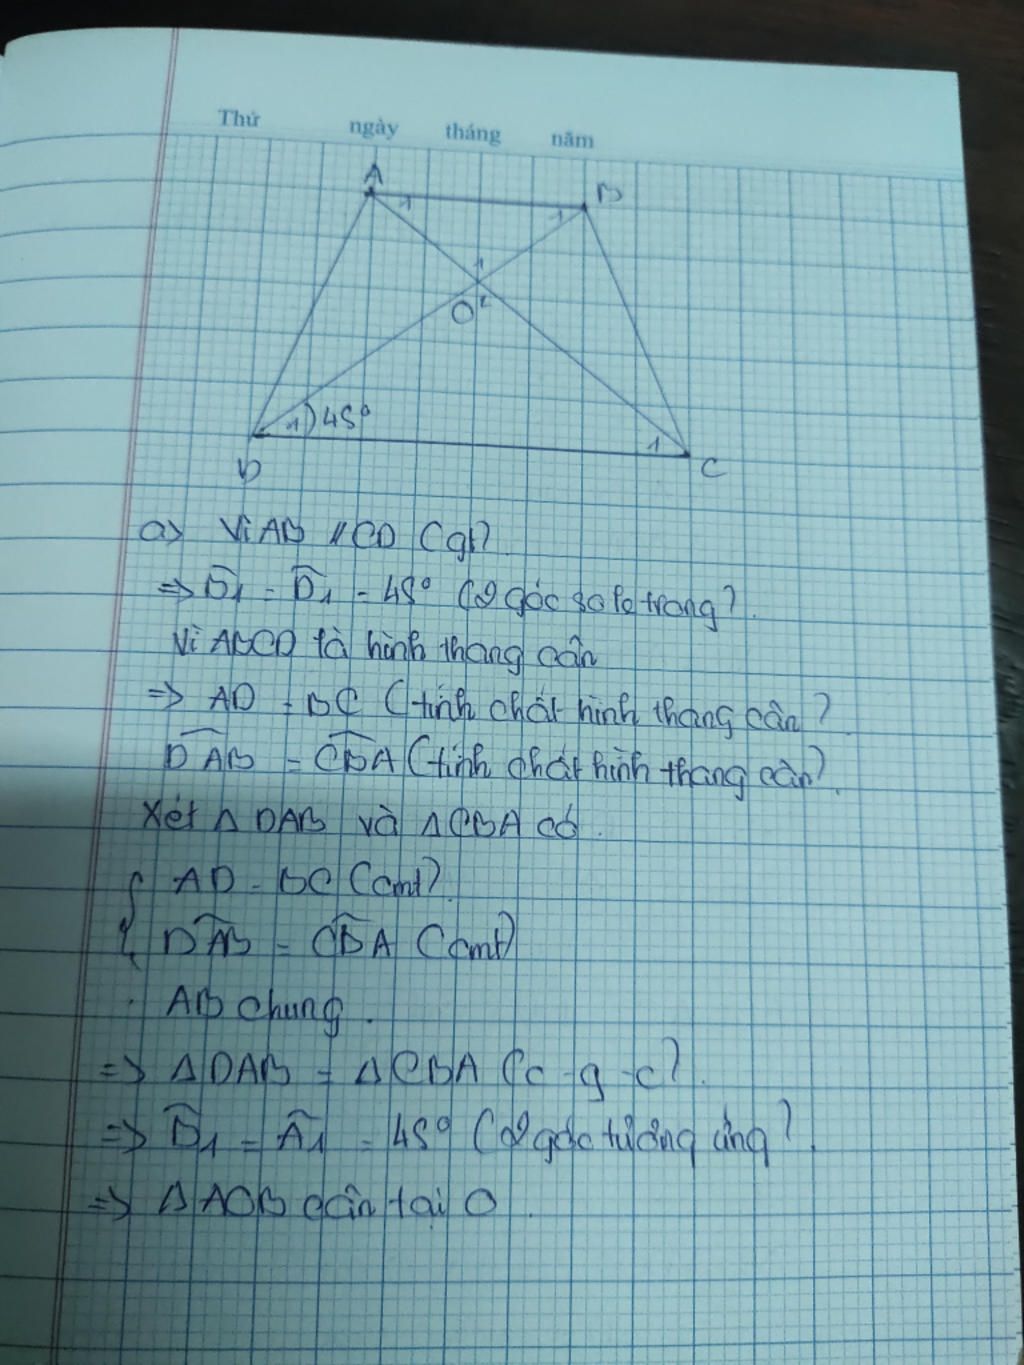 Thứ ngày tháng năm
A
B
1
1
1
O
2
1
45°
1
D
C
a) Vì AB // CD (gt)
=> B̂1 = D̂1 = 45° (2 góc so le trong).
Vì ABCD là hình thang cân
=> AD = BC (tính chất hình thang cân)
DAB = CBA (tính chất hình thang cân).
Xét Δ DAB và Δ CBA có.
{ AD = BC (cmt).
DAB = CBA (cmt)
AB chung.
=> Δ DAB = Δ CBA (c-g-c).
=> B̂1 = Â1 = 45° (2 góc tương ứng).
=> Δ AOB cân tại O.